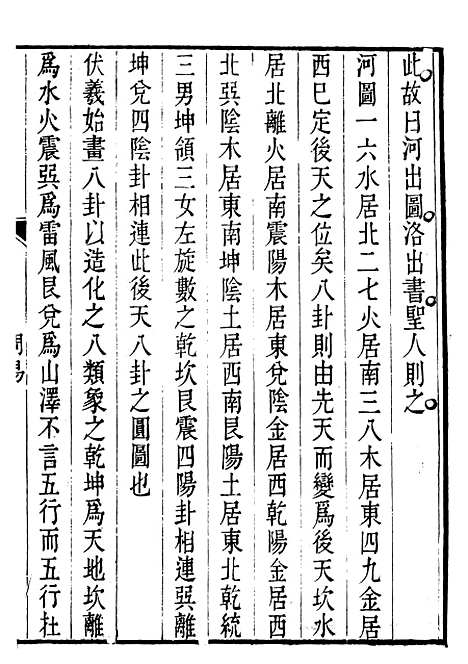 此故曰河出圖洛出書聖人則之
河圖一六水居北二七火居南三八木居東四九金居
西已定後天之位矣八卦則由先天而變為後天坎水
居北離火居南震陽木居東兌陰金居西乾陽金居西
北巽陰木居東南坤陰土居西南艮陽土居東北乾統
三男坤領三女左旋數之乾坎艮震四陽卦相連巽離
坤兌四陰卦相連此後天八卦之圓圖也
伏羲始畫八卦以造化之八類象之乾坤爲天地坎離
爲水火震巽爲雷風艮兌爲山澤不言五行而五行在